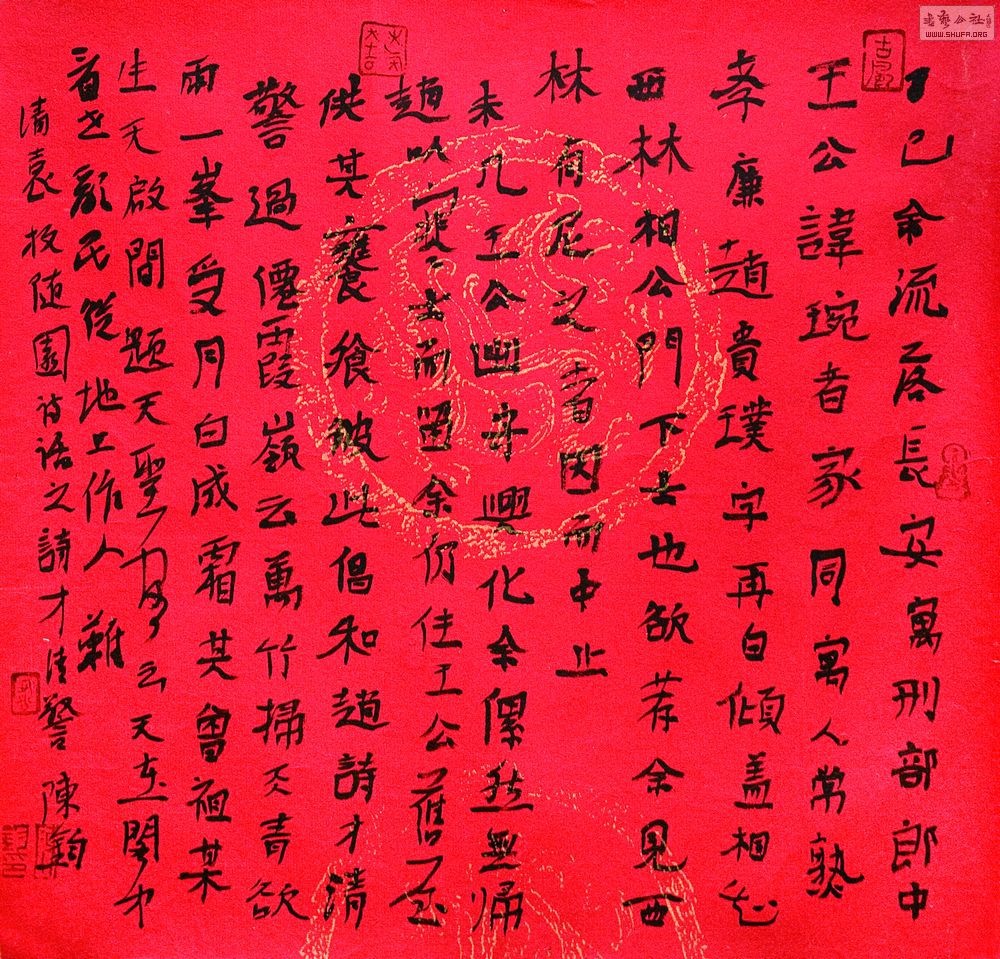 丁巳余流落長安寓刑部郎中
王公諱琬者家同寓人常熟
孝廉趙貴璞字再白傾盖相
西林相公門下士也欲荐余見西
林有尼之者因而中止
未几王公興化余傫然無歸
趙以寒士而留余仍住王公舊
供其饔飧彼此倡和趙詩才清
警過僊霞嶺云萬竹掃天青欲
雨一峯受月白成霜其曾祖某
生天啟間題天聖云天在閣中
看世亂民從地上作人難
清袁枚随園詩話之詩才清警 陳
WWW.SHUFA.ORG